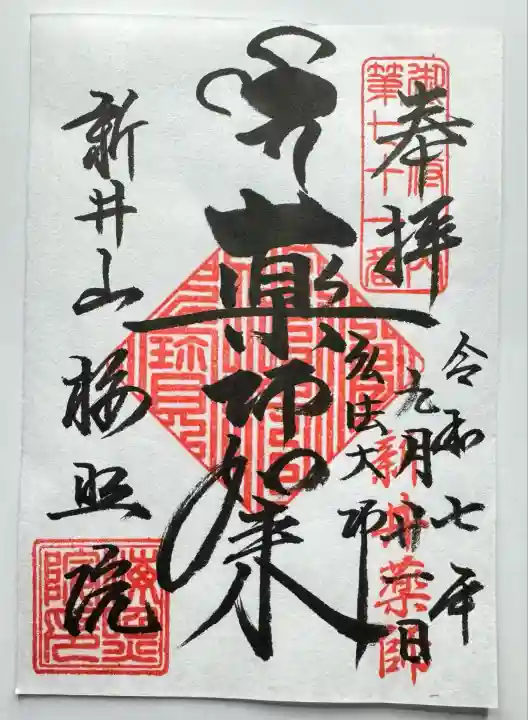 奉拝
御府内
第七十一番
令和七年
九月廿一日
新井薬師
弘法大師
薬師如来
新井山
梅照院